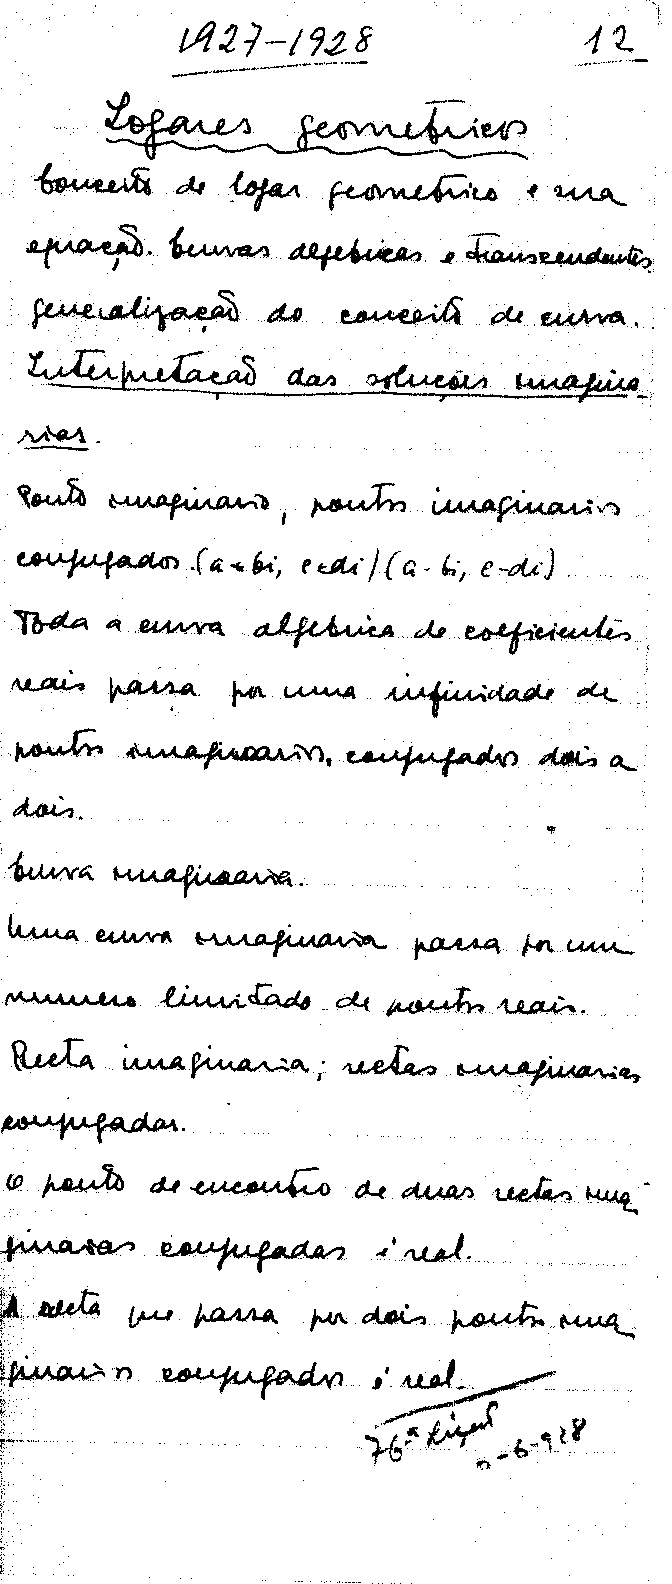 1927-1928 12
Logares geometricos
Conceito de logar geometrico e sua
equação. Curvas algebricas e transcendentes
generalização do conceito de curva.
Interpretação das soluções imagina-
rias.
Ponto imaginario, pontos imaginarios
conjugados. (a+bi, c+di) (a-bi, c-di)
Toda a curva algebrica de coeficientes
reais passa por uma infinidade de
pontos imaginarios, conjugados dois a
dois.
Curva imaginaria.
Uma curva imaginaria passa por um
numero limitado de pontos reais.
Recta imaginaria; rectas imaginarias
conjugadas.
O ponto de encontro de duas rectas ima
ginarias conjugadas é real.
A recta que passa por dois pontos ima
ginarios conjugados é real.
76ª Lição
-6-928